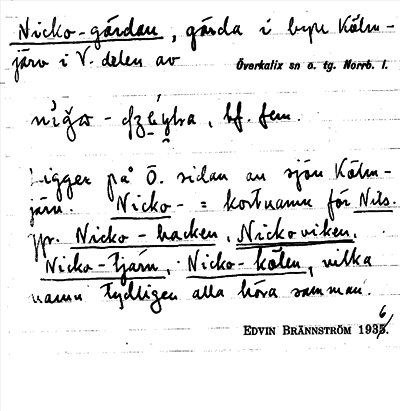 Nicko-gårdan, gårda i byn Kälm-
järv i V. delen av Överkalix sn o. tg. Norrb. l.
bf. fem.
Ligger på Ö. sidan av sjön Kälm-
järv. Nicko- = kortnamn för Nils.
Jfr. Nicko-backen, Nickoviken,
Nicko-tjärn, Nicko-kölen, vilka
namn tydligen alla höra samman.
EDVIN BRÄNNSTRÖM 1936/